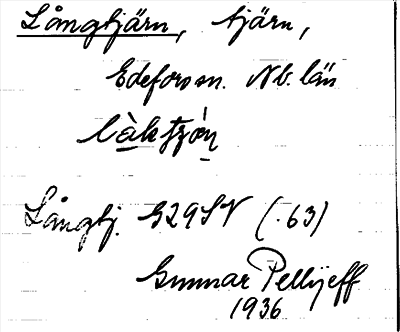 Långtjärn, tjärn,
Edefors sn. Nb. län
Långtj. G29SV (·63)
Gunnar Pellijeff
1936